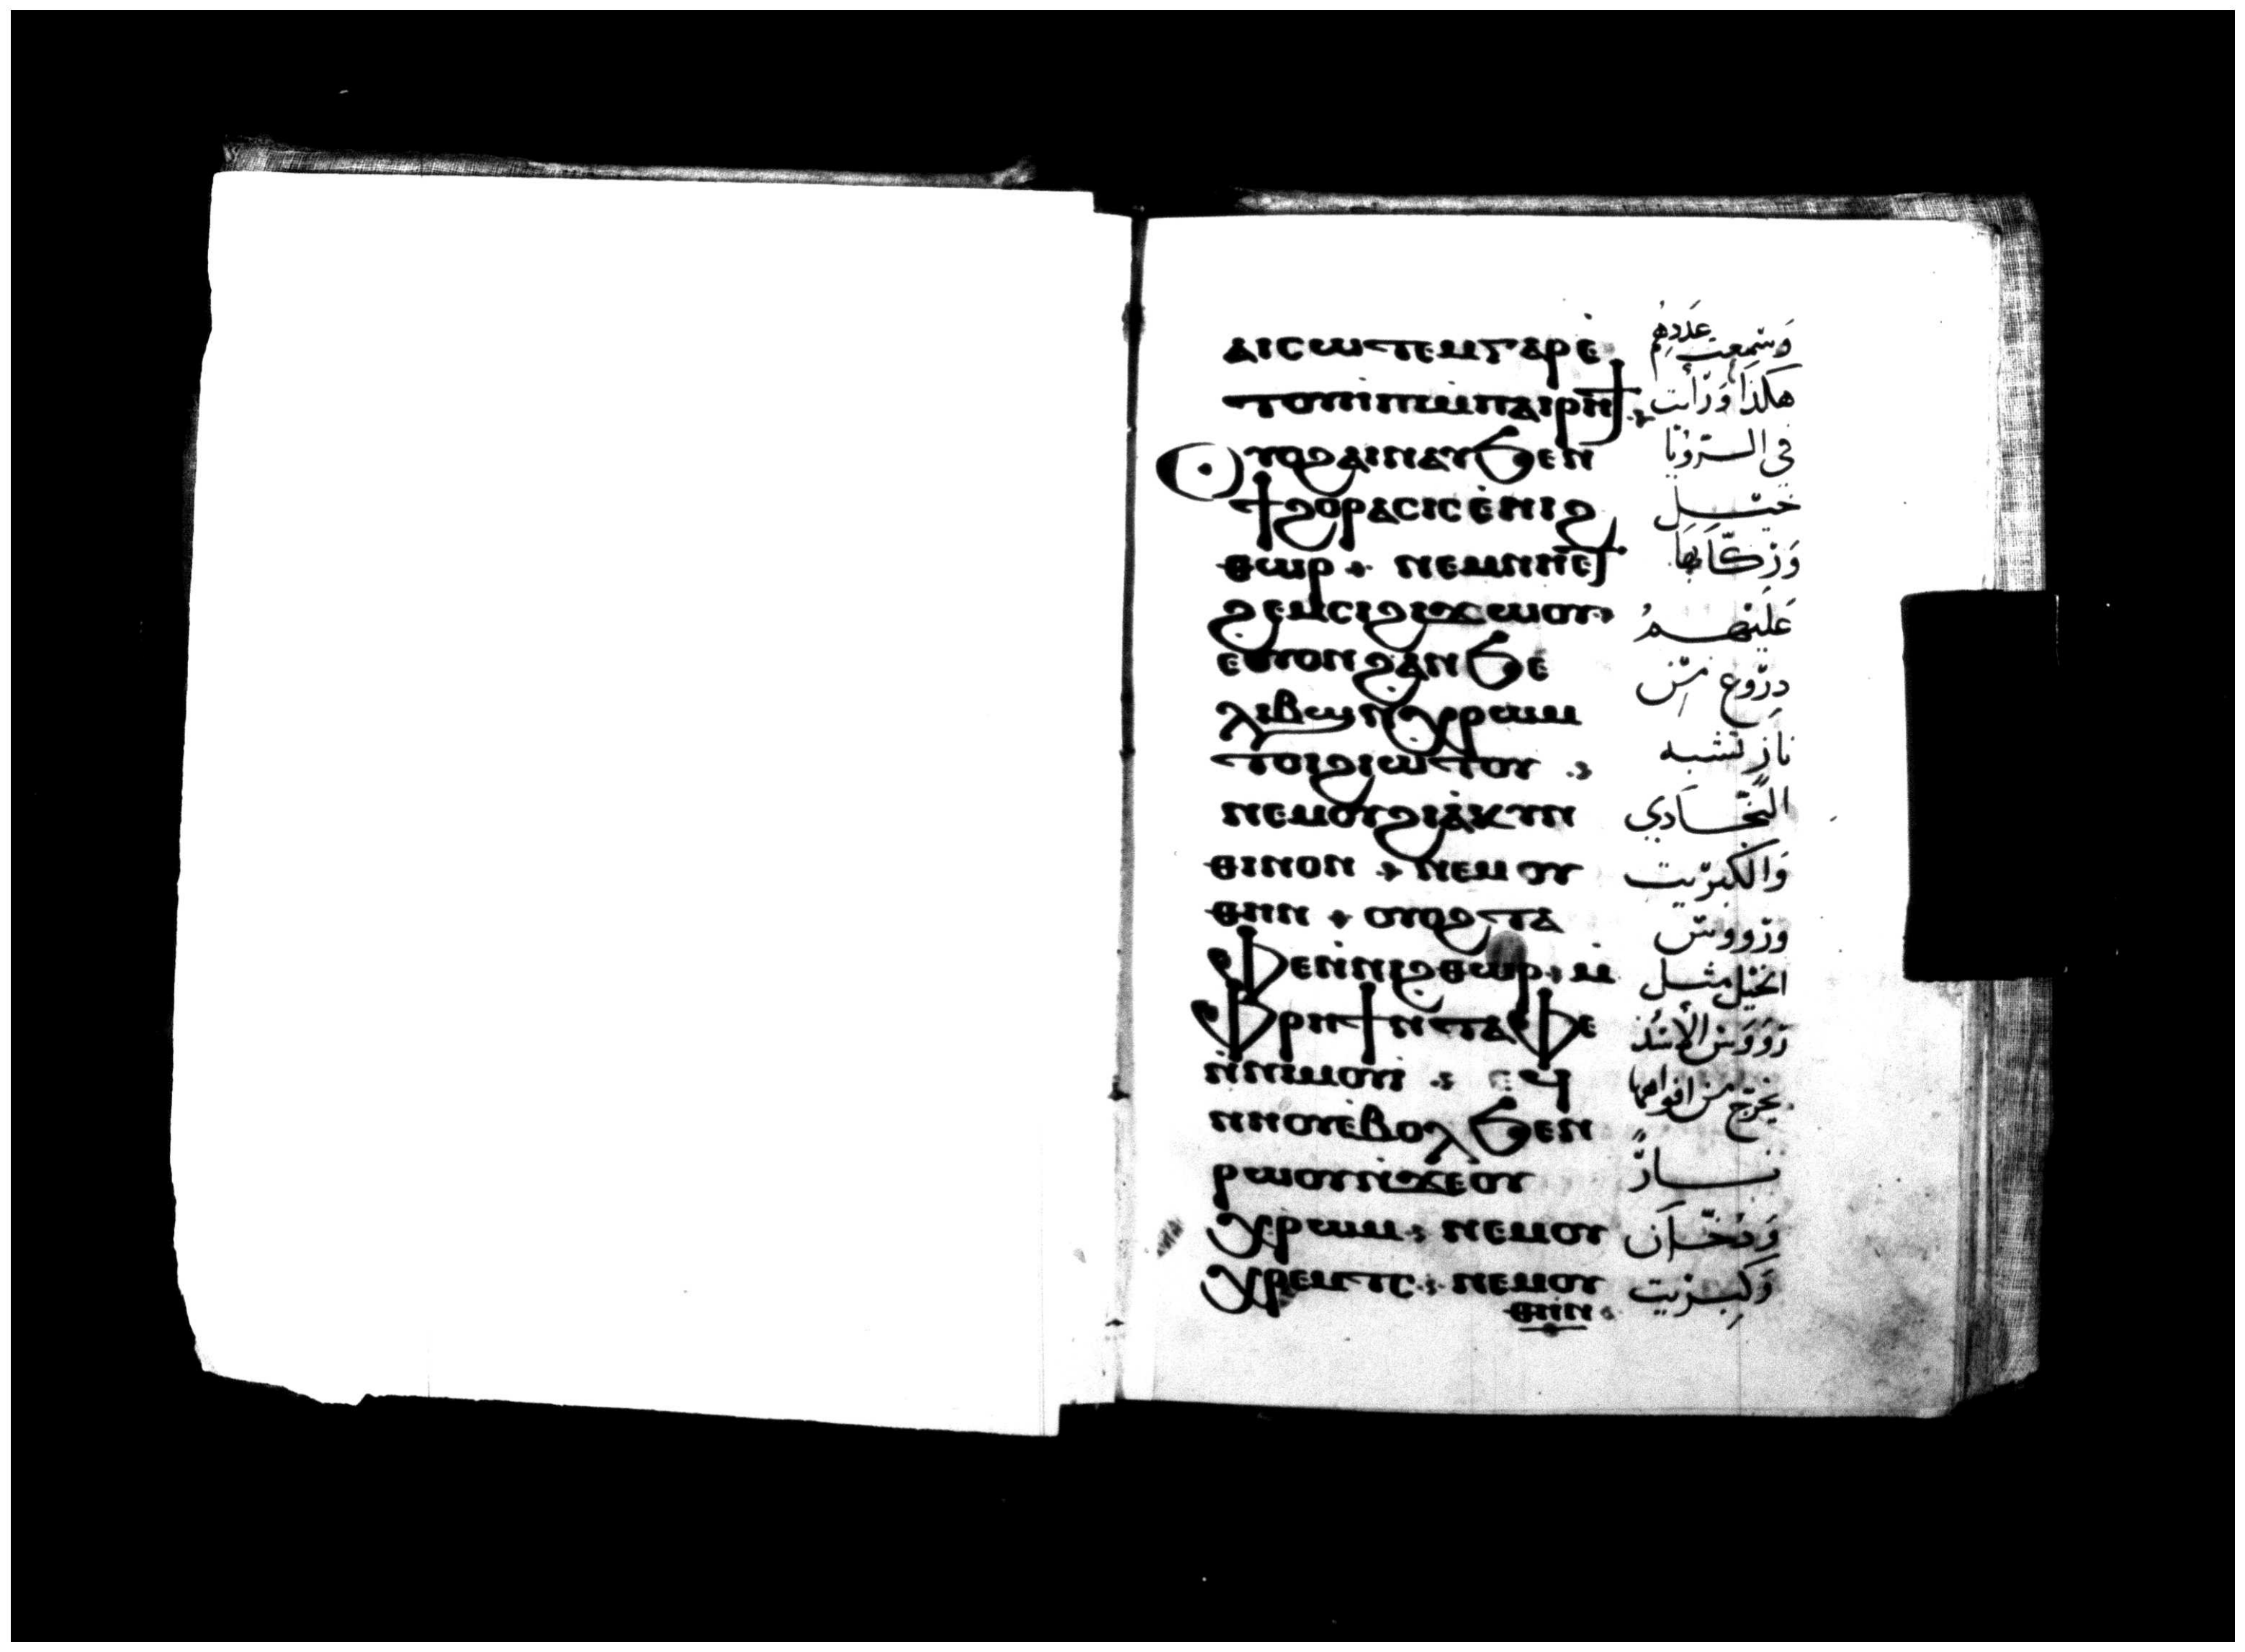 ⲁⲓⲥⲱⲧⲉⲙⲅⲁⲣⲉ̀
ⲧⲟⲩⲏ̀ⲡⲓⲙ̀ⲡⲁⲓⲣⲏϯ
ⲟⲩⲟϩⲁⲓⲛⲁⲩϧⲉⲛ
ϯϩⲟⲣⲁⲥⲓⲥⲉ̀ⲛⲓϩ
ⲑⲱⲣ ⲛⲉⲙⲛⲏⲉⲧ
ϩⲉⲙⲥⲓϩⲓϫⲱⲟⲩ
ⲉⲟⲩⲟⲛϩⲁⲛϧⲉ
ⲗⲓⲃϣⲛ̀ⲭⲣⲱⲙ
ⲧⲟⲓϩⲓⲱⲧⲟⲩ
ⲛⲉⲙⲟⲩϩⲓⲁ̀ⲕⲩⲛ
ⲑⲓⲛⲟⲛ ⲛⲉⲙ ⲟⲩ
ⲑⲏⲛ ⲟⲩⲟϩⲧⲁ
ⲫⲉⲛ̀ⲛⲓϩⲑⲱⲣ ⲙ̀
ⲫⲣⲏϯⲛⲧⲁⲫⲉ
ⲛ̀ⲛⲓⲙⲟⲩⲓ̀ ⲉϥ
ⲛⲏⲟⲩⲉ̀ⲃⲟⲗϧⲉⲛ
ⲣⲱⲟⲩⲛ̀ϫⲉⲟⲩ
ⲭⲣⲱⲙ ⲛⲉⲙⲟⲩ
ⲭⲣⲉⲙⲧⲥ ⲛⲉⲙⲟⲩ
ⲑⲏⲛ
وَسَمِعت عَدَدهُم
هَكذَا وَرَأيت
في الرؤيَا
خيل
وَرُكَّابهَا
عَليْهمُ
دِرُوع مِن
نار تشبه
النجادي
وَالكبريت
ورووس
الخيْل مثل
رُووَس الأسُد
يخرج من افواهها
نــار
وَدُخَان
وَكِبريت